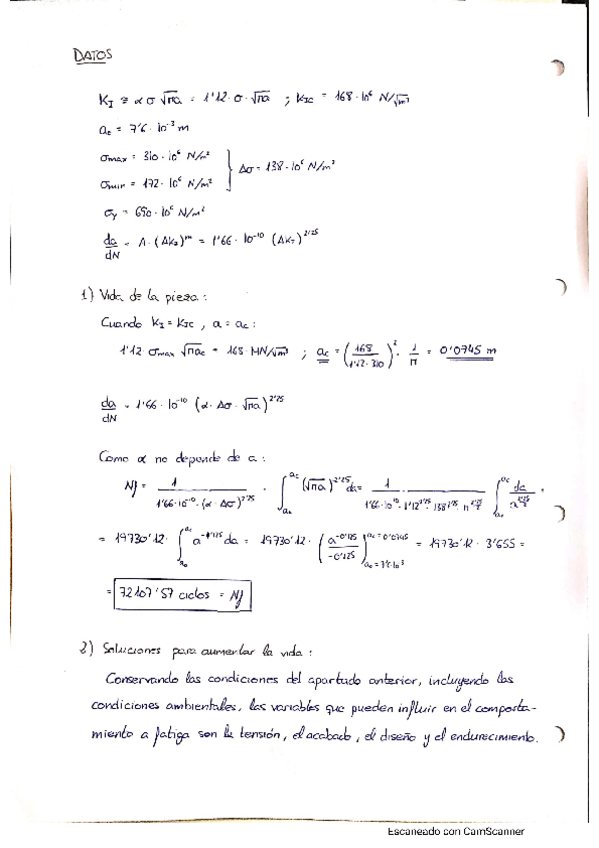 DATOS
K_I = α σ √πa = 1'12 · σ · √πa ; K_IC = 168 · 10⁶ N/√m³
a₀ = 7'6 · 10⁻³ m
σmax = 310 · 10⁶ N/m²
σmin = 172 · 10⁶ N/m² } Δσ = 138 · 10⁶ N/m²
σy = 690 · 10⁶ N/m²
da/dN = A · (ΔK_I)^m = 1'66 · 10⁻¹⁰ (ΔK_I)^2'25
1) Vida de la pieza :
Cuando K_I = K_IC , a = ac :
1'12 · σmax √πac = 168 MN/√m³ ; ac = (168/1'12·310)² · 1/π = 0'0745 m
da/dN = 1'66 · 10⁻¹⁰ (α · Δσ · √πa)^2'25
Como α no depende de a :
Nf = 1/1'66·10⁻¹⁰·(α·Δσ)^2'25 · ∫_a₀^ac (√πa)^2'25 da = 1/1'66·10⁻¹⁰·1'12^2'25·138^2'25 ∫_a₀^ac da
= 19730'12 · ∫_a₀^ac a^-1'125 da = 19730'12 · (a^-0'125/-0'125]_a₀^ac=0'0745 = 19730'12 · 3'655 =
= 72107'57 ciclos = Nf
2) Soluciones para aumentar la vida :
Conservando las condiciones del apartado anterior, incluyendo las
condiciones ambientales, las variables que pueden influir en el comporta-
miento a fatiga son la tensión, el acabado, el diseño y el endurecimiento.
Escaneado con CamScanner